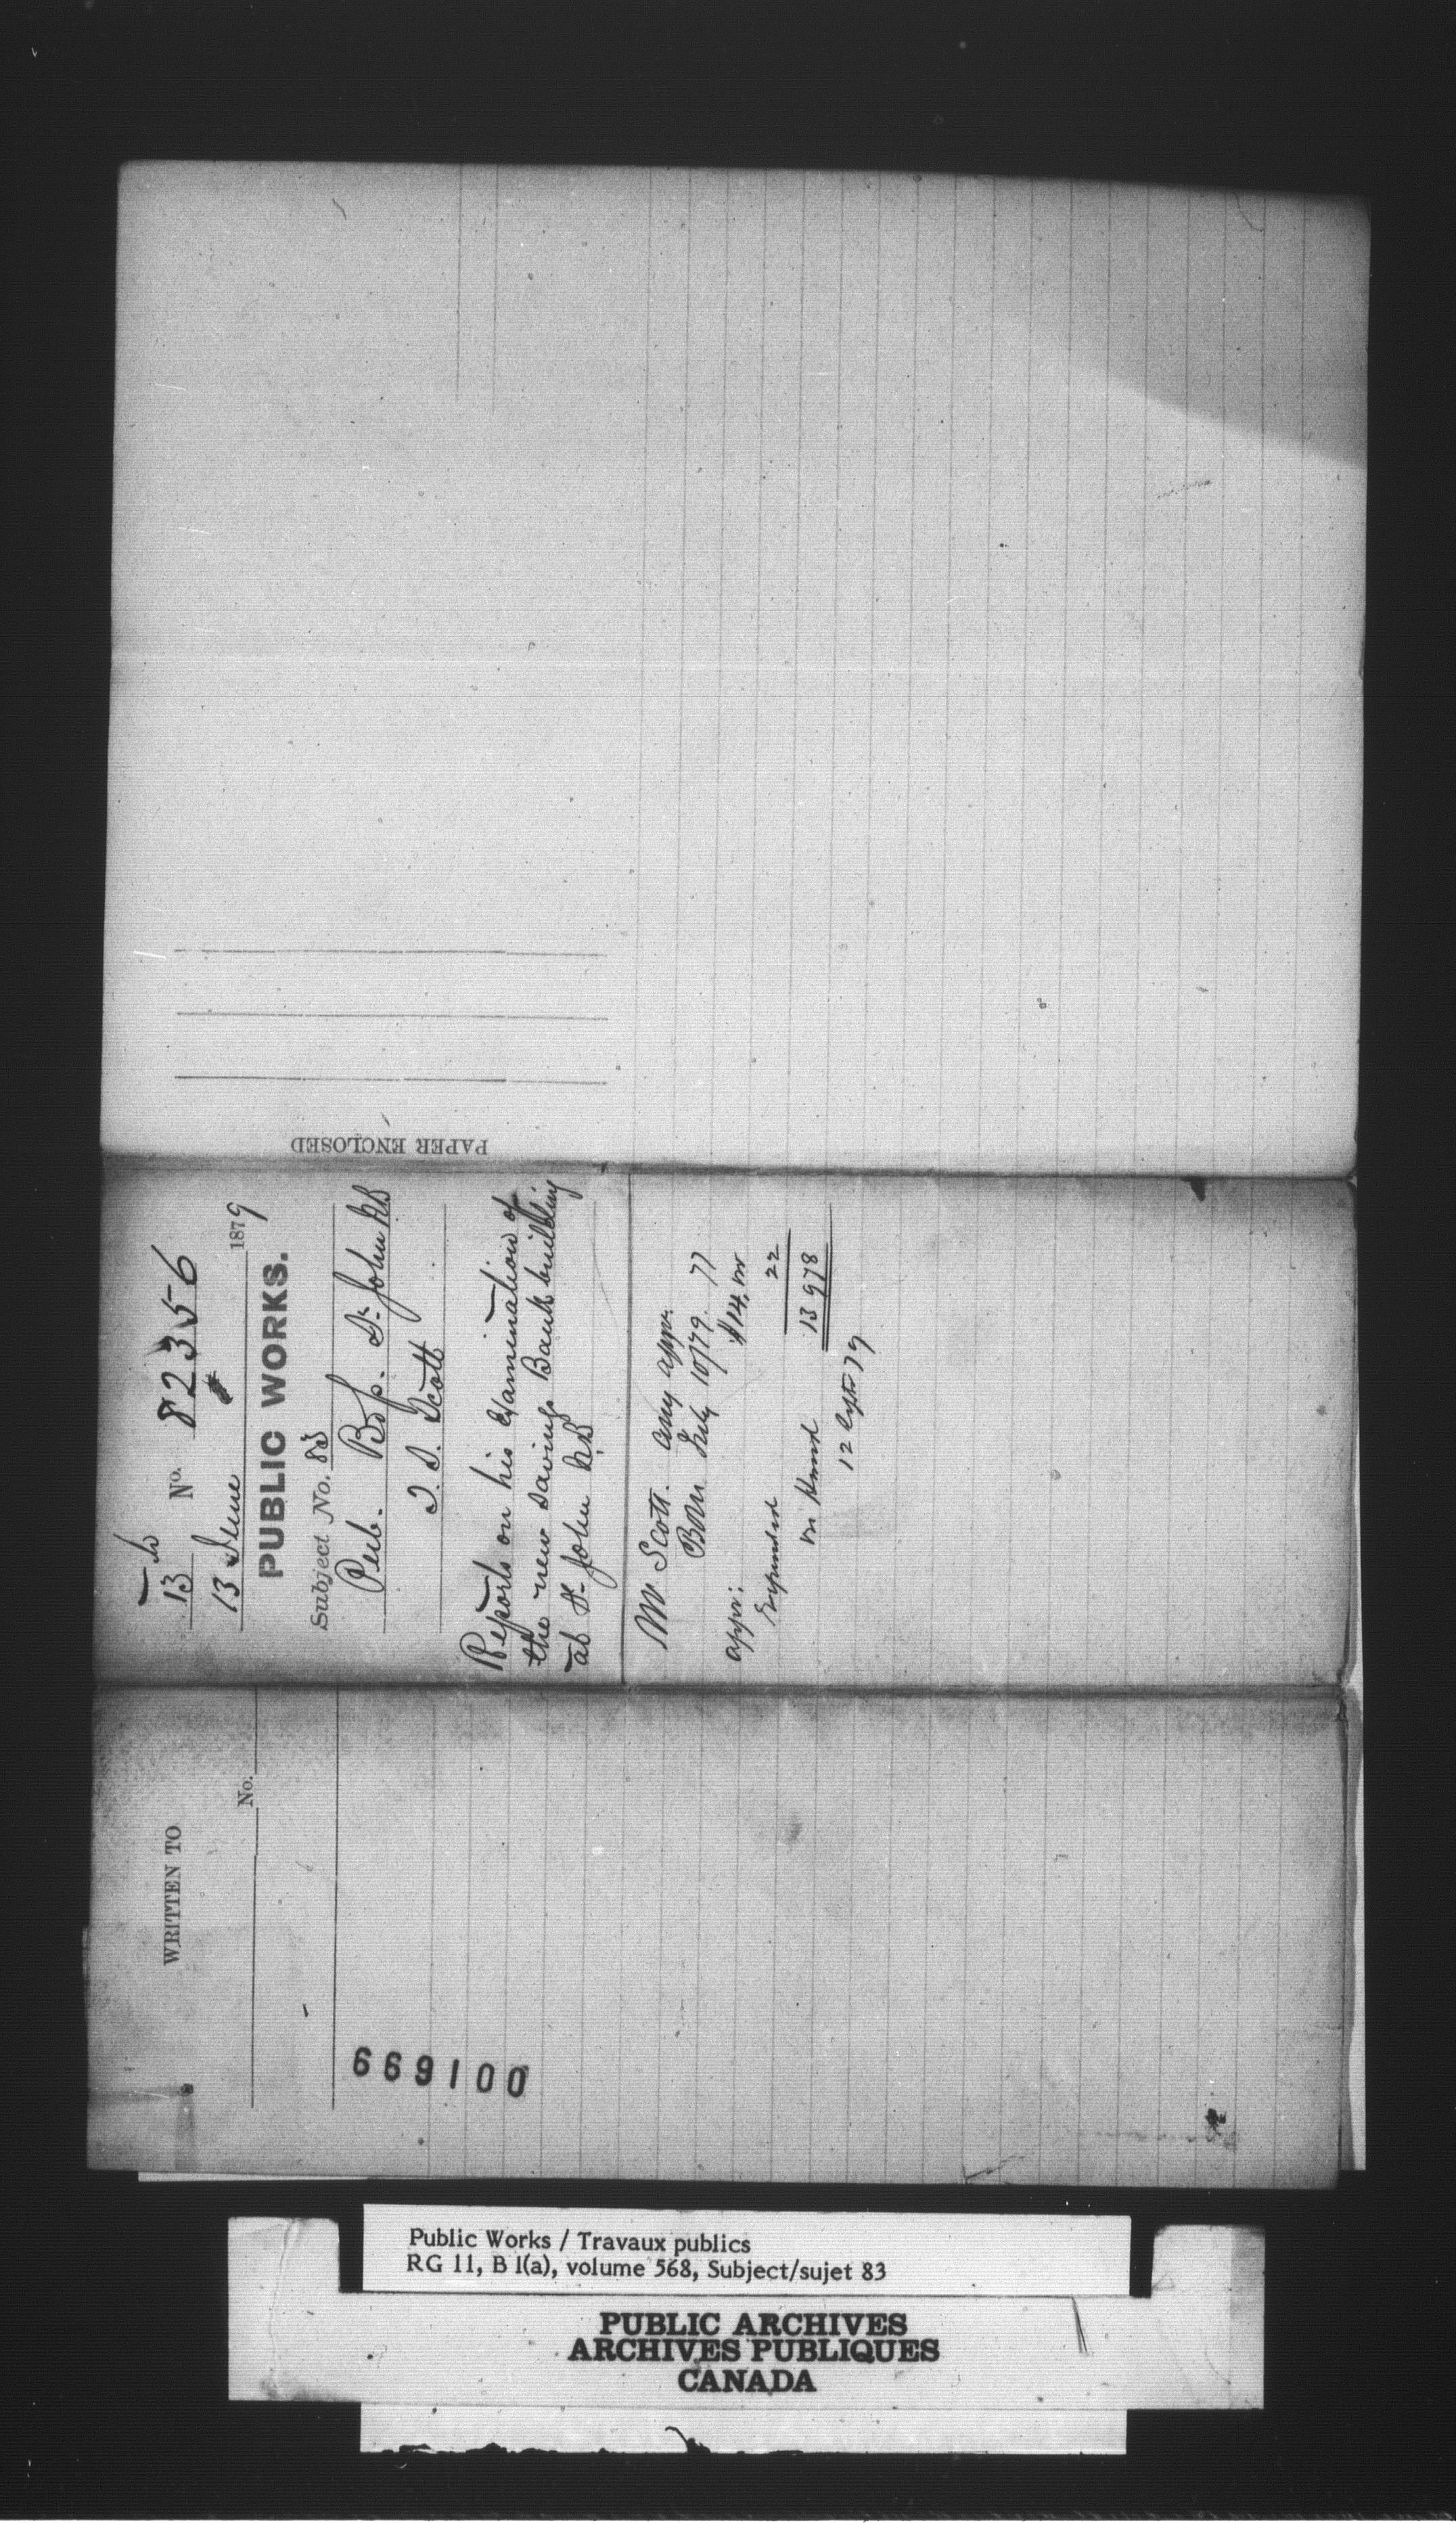 PAPER ENCLOSED
13 No. 82356
13 June 1879
PUBLIC WORKS.
Subject No. 83
Pub. St. John NB
T. S. Scott
Reports on his Examination of
the new Savings Bank building
at St. John NB
Mr Scott. any appn.
July 10/79. 77
appn: $14,
Expended 22
on Hand 13 978
12 79
WRITTEN TO
No.
669100
Public Works / Travaux publics
RG 11, B 1(a), volume 568, Subject/sujet 83
PUBLIC ARCHIVES
ARCHIVES PUBLIQUES
CANADA